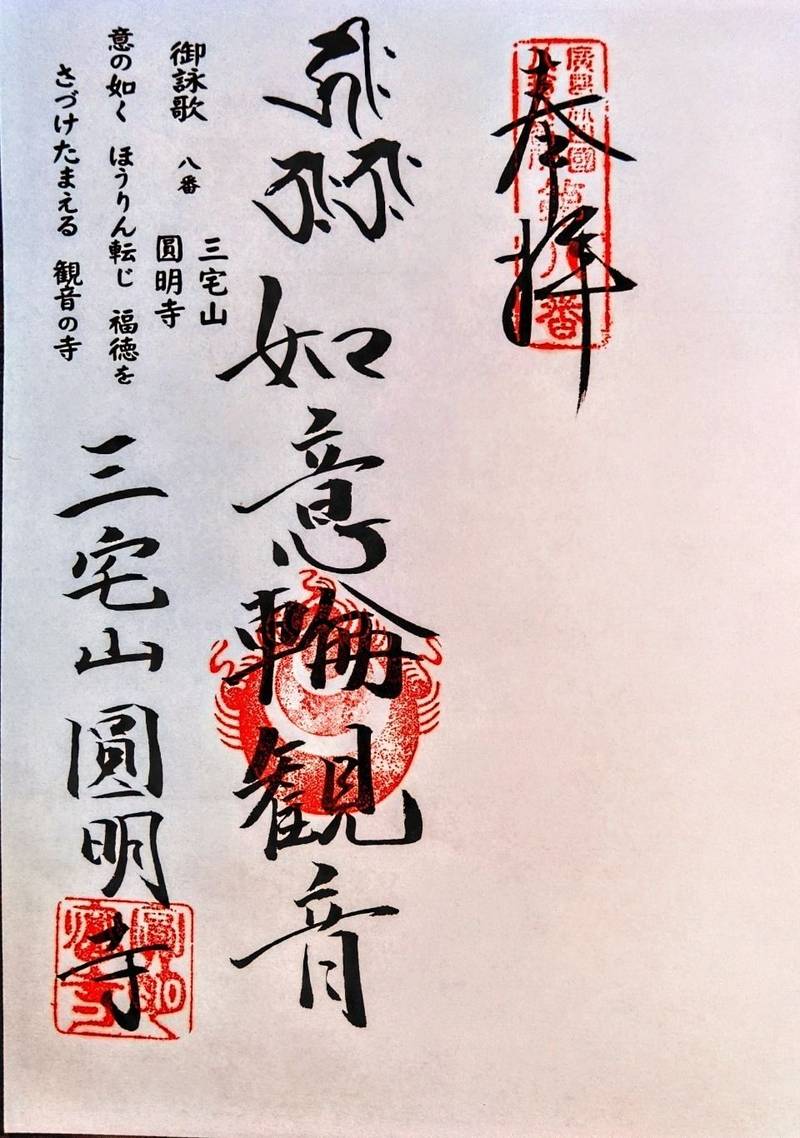 奉拝
第八番
如意輪観音
御詠歌 八番 三宅山
圓明寺
意の如く ほうりん転じ 福徳を
さづけたまえる 観音の寺
三宅山圓明寺